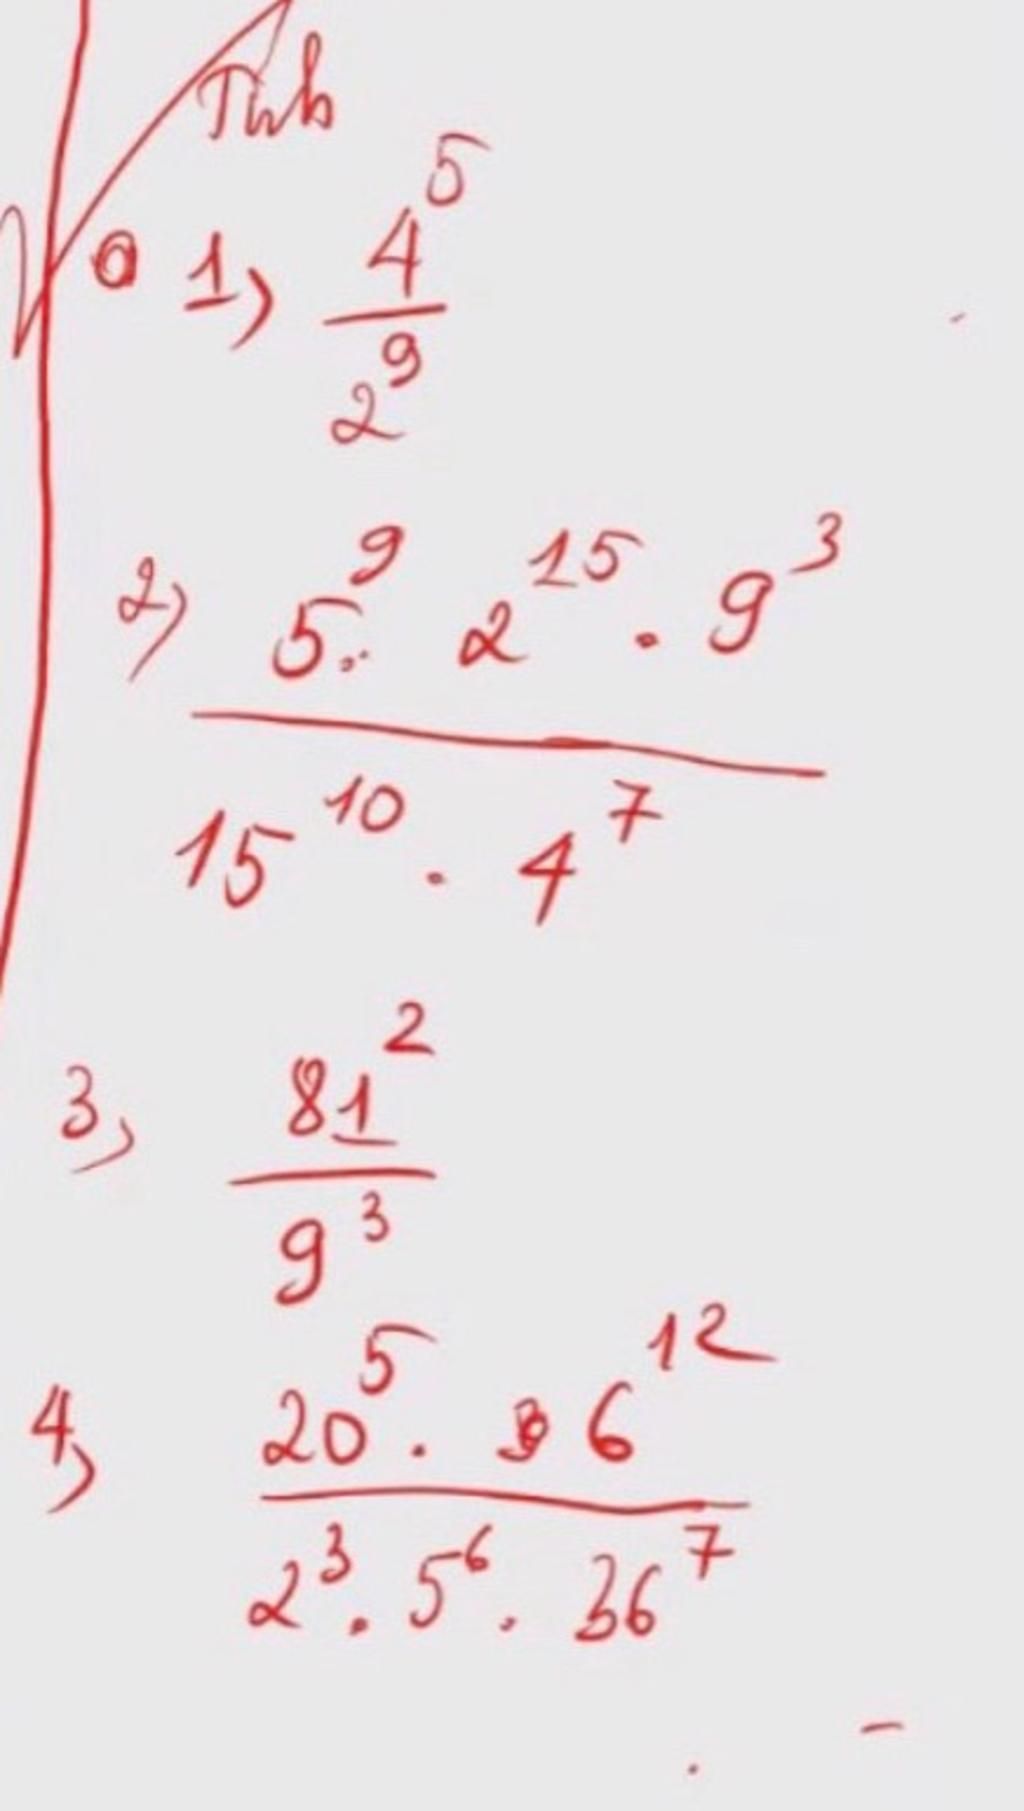 1) 4⁵ / 2⁹
2) 5⁹ . 2¹⁵ . 9³ / 15¹⁰ . 4⁷
3, 81² / 9³
4, 20⁵ . 6¹² / 2³ . 5⁶ . 36⁷